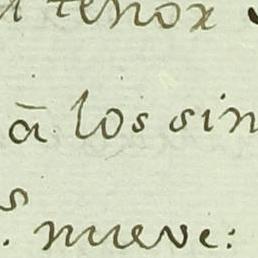 tenor
ā los sin
s. nueve: